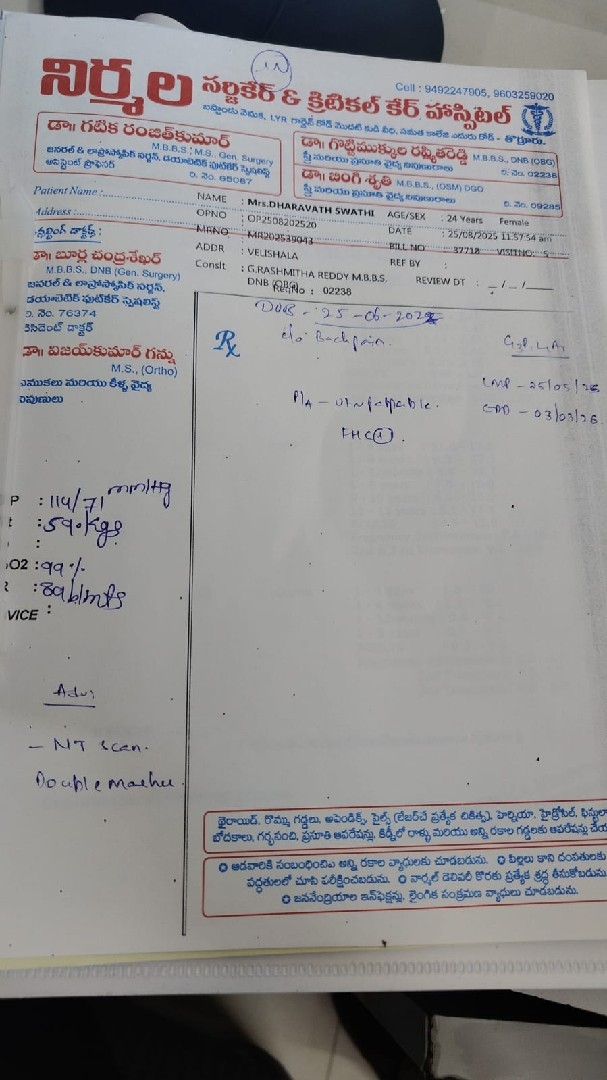 నిర్మల సర్జికేర్ & క్రిటికల్ కేర్ హాస్పిటల్
Cell : 9492247905, 9603259020
బస్టాండు వెనుక, LYR గార్డెన్ రోడ్ మొదటి కుడి వీధి, సమత కాలేజ్ ఎదురు రోడ్ - తొర్రూరు.
డా॥ గటిక రంజిత్‌కుమార్
M.B.B.S ; M.S. Gen. Surgery
జనరల్ & లాప్రోస్కోపిక్ సర్జన్, డయాబెటిక్ ఫుట్‌కేర్ స్పెషలిస్ట్
అసిస్టెంట్ ప్రొఫెసర్
రి. నెం. 65067
డా॥ గొట్టిముక్కుల రష్మితరెడ్డి M.B.B.S., DNB (OBG)
స్త్రీ మరియు ప్రసూతి వైద్య నిపుణురాలు రి. నెం. 02238
డా॥ బింగి శృతి M.B.B.S., (OSM) DGO
స్త్రీ మరియు ప్రసూతి వైద్య నిపుణురాలు రి. నెం. 09285
Patient Name :
Address :
NAME : Mrs.DHARAVATH SWATHI AGE/SEX : 24 Years Female
OPNO : OP2508202520 DATE : 25/08/2025 11:57:54 am
MRNO : MR202539043 BILL NO : 37718 VISITNO: 5
ADDR : VELISHALA REF BY :
Conslt : G.RASHMITHA REDDY M.B.B.S. DNB (OBG) REVIEW DT : _ / _ / _
RegNo : 02238
కన్సల్టింగ్ డాక్టర్స్ :
డా॥ బూర్గ చంద్రశేఖర్
M.B.B.S., DNB (Gen. Surgery)
జనరల్ & లాప్రోస్కోపిక్ సర్జన్,
డయాబెటిక్ ఫుట్‌కేర్ స్పెషలిస్ట్
రి. నెం. 76374
రెసిడెంట్ డాక్టర్
డా॥ విజయ్‌కుమార్ గన్ను
M.S., (Ortho)
ఎముకలు మరియు కీళ్ళ వైద్య
నిపుణులు
Rx
c/o Back pain.
LMP - 25/05/25
P/A - ut palpable.
EDD - 03/03/26.
FHC (+).
P : 114/71 mm/Hg
t : 59.kgs
:
O2 : 99%
R : 89 b/mts
VICE :
Adv:
- NT scan.
Double marker.
థైరాయిడ్, రొమ్ము గడ్డలు, అపెండిక్స్, పైల్స్ (లేజర్‌చే ప్రత్యేక చికిత్స), హెర్నియా, హైడ్రోసిల్, ఫిస్టులా
బోదకాలు, గర్భసంచి, ప్రసూతి ఆపరేషన్లు, కిడ్నీలో రాళ్ళు మరియు అన్ని రకాల గడ్డలకు ఆపరేషన్లు
ఆడవారికి సంబంధించిన అన్ని రకాల వ్యాధులకు చూడబడును. పిల్లలు కాని దంపతులకు
పద్ధతులలో చూసి పరీక్షించబడును. నార్మల్ డెలివరీ కొరకు ప్రత్యేక శ్రద్ధ తీసుకోబడును.
జననేంద్రియాల ఇన్‌ఫెక్షన్లు, లైంగిక సంక్రమణ వ్యాధులు చూడబడును.